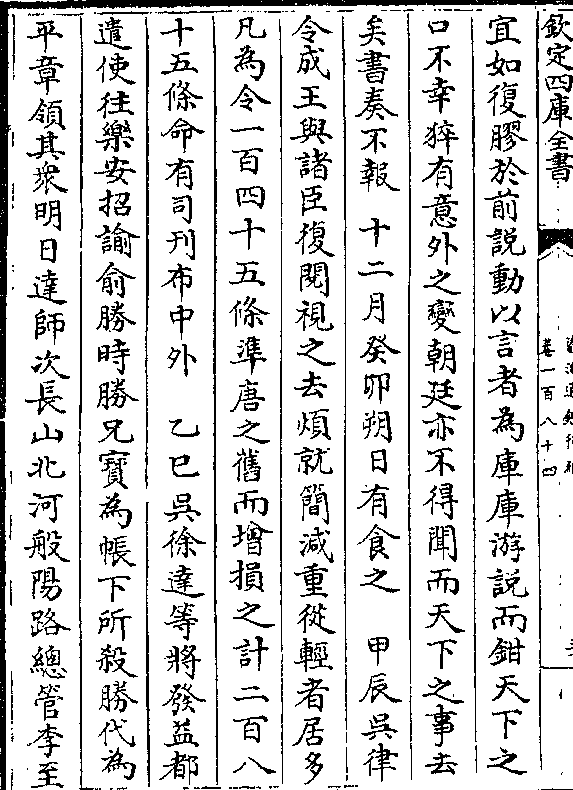 欽定四庫全書
卷一百八十四
宜如復膠於前説動以言者為庫庫游説而鉗天下之
口不幸猝有意外之變朝廷亦不得聞而天下之事去
矣書奏不報　十二月癸卯朔日有食之　甲辰吳律
令成王與諸臣復閱視之去煩就簡減重從輕者居多
凡為令一百四十五條準唐之舊而增損之計二百八
十五條命有司刊布中外　乙巳吳徐達等將發益都
遣使往樂安招諭俞勝時勝兄寶為帳下所殺勝代為
平章領其衆明日達師次長山北河般陽路總管李至